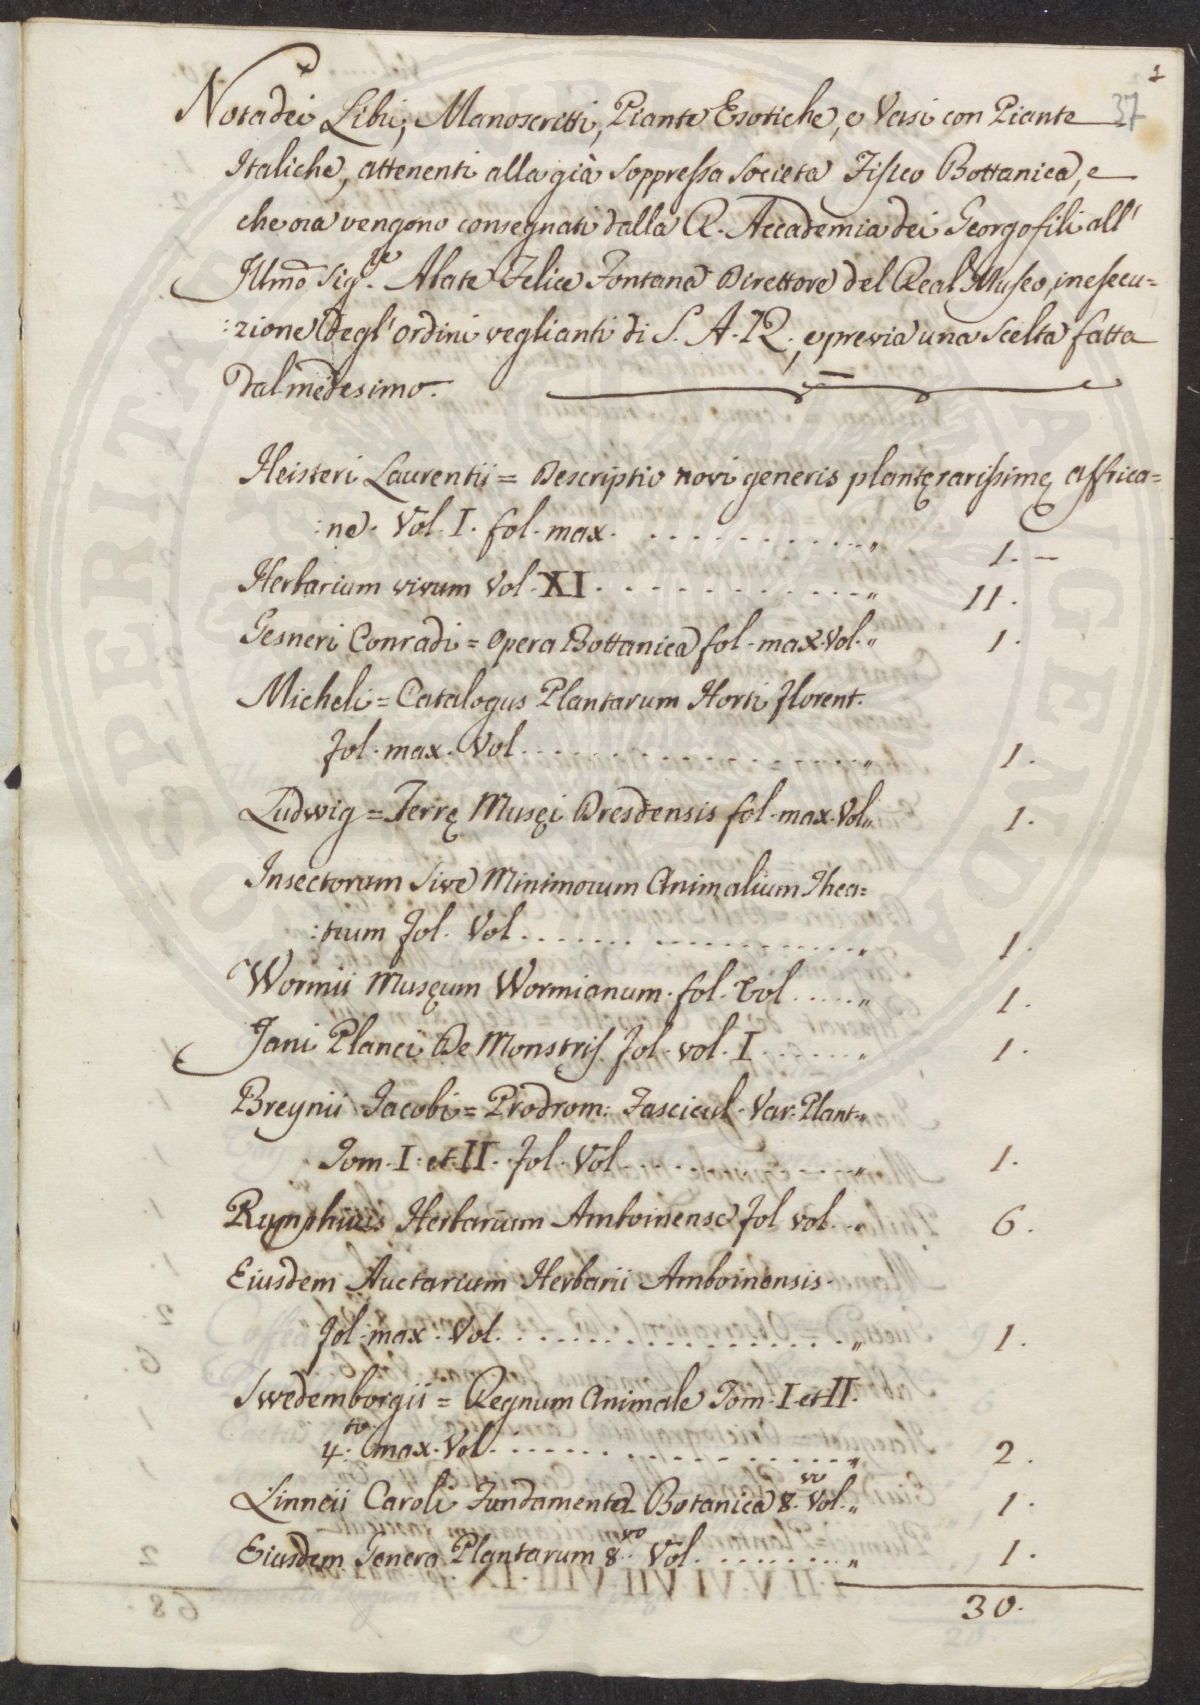 1
37
Nota dei Libri, Manoscritti, Piante Esotiche, e Vasi con Piante
Italiche, attenenti alla già soppressa Società Fisico Bottanica, e
che ora vengono consegnati dalla R. Accademia dei Georgofili all'
Illmo Sig.re Abate Felice Fontana Direttore del Real Museo, in esecu=
:zione degl' ordini veglianti di S. A. R., e previa una scelta fatta
dal medesimo.
Heisteri Laurentii = Descriptio novi generis plantę rarissimę Affrica=
:ne. Vol. I. fol. max. . . . . . . . . . . . " 1. —
Herbarium vivum Vol. XI. . . . . . . . . . . . " 11.
Gesneri Conradi = Opera Bottanica fol. max. Vol. " 1.
Micheli = Catalogus Plantarum Horti Florent.
fol. max. Vol. . . . . . . . . . . . . . " 1.
Ludwig = Terrę Musęi Dresdensis fol. max. Vol. " 1.
Insectorum sive Minimorum Animalium Thea=
:trum fol. Vol. . . . . . . . . . . . . . . " 1.
Wormii Musęum Wormianum. fol. Vol. . . . . " 1.
Jani Planci De Monstris. fol. vol. I. . . . . . " 1.
Breynii Jacobi = Prodrom: Fascicul. Var. Plant. "
Tom. I. et II. fol. Vol. . . . . . . . . . " 1.
Rumphiuis Herbarium Amboinense fol vol. . " 6.
Eiusdem Auctarium Herbarii Amboinensis.
fol. max. Vol. . . . . . . . . . . . . . . " 1.
Swedemborgii = Regnum Animale Tom. I. et II.
4.to max. Vol. . . . . . . . . . . . . . " 2.
Linneii Caroli Fundamenta Botanica 8.vo Vol. " 1.
Eiusdem Genera Plantarum 8.vo Vol. . . . . . . . " 1.
30.